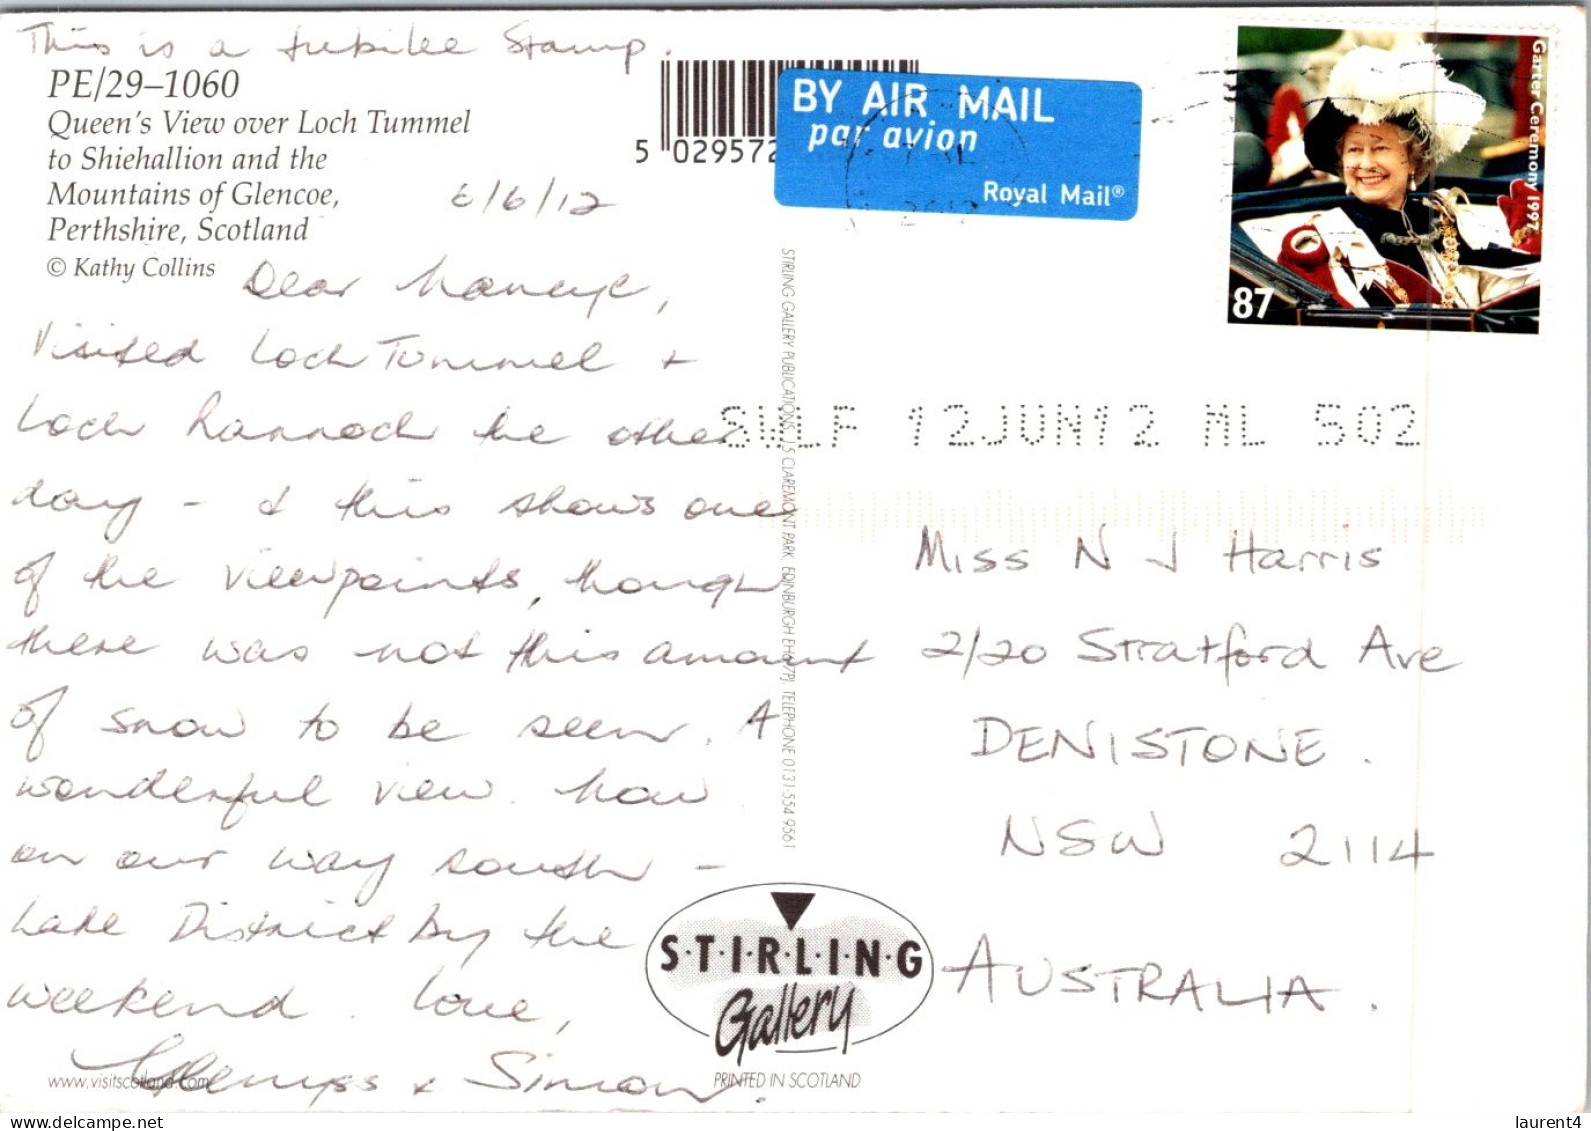 This is a Jubilee Stamp.
PE/29–1060
Queen's View over Loch Tummel
to Shiehallion and the
Mountains of Glencoe,
Perthshire, Scotland
© Kathy Collins
6/6/12
Dear Nancye,
Visited Loch Tummel +
Loch Rannoch the other
day - & this shows one
of the viewpoints, though
there was not this amount
of snow to be seen. A
wonderful view. Now
on our way south -
Lake District by the
weekend. Love,
Glenyss & Simon.
www.visitscotland.com
5 029572
BY AIR MAIL
par avion
Royal Mail®
Garter Ceremony 1997
87
SWLF 12JUN12 ML 502
STIRLING GALLERY PUBLICATIONS, 15 CLAREMONT PARK, EDINBURGH EH6 7PJ. TELEPHONE 0131-554 9561
Miss N J Harris
2/20 Stratford Ave
DENISTONE.
NSW 2114
AUSTRALIA.
S·T·I·R·L·I·N·G
Gallery
PRINTED IN SCOTLAND
laurent4